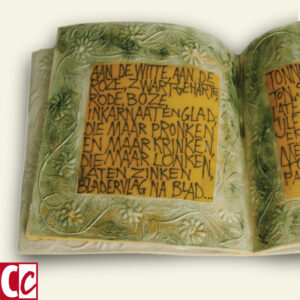 AAN DE WITTE, AAN DE
ROZE, ZWARTGEHARTE,
RODE, BOZE,
INKARNAATENGLAD,
DIE MAAR PRONKEN
EN MAAR KRINKEN,
DIE MAAR LONKEN,
LATEN ZINKEN
BLADERVLAG NA BLAD...
CC